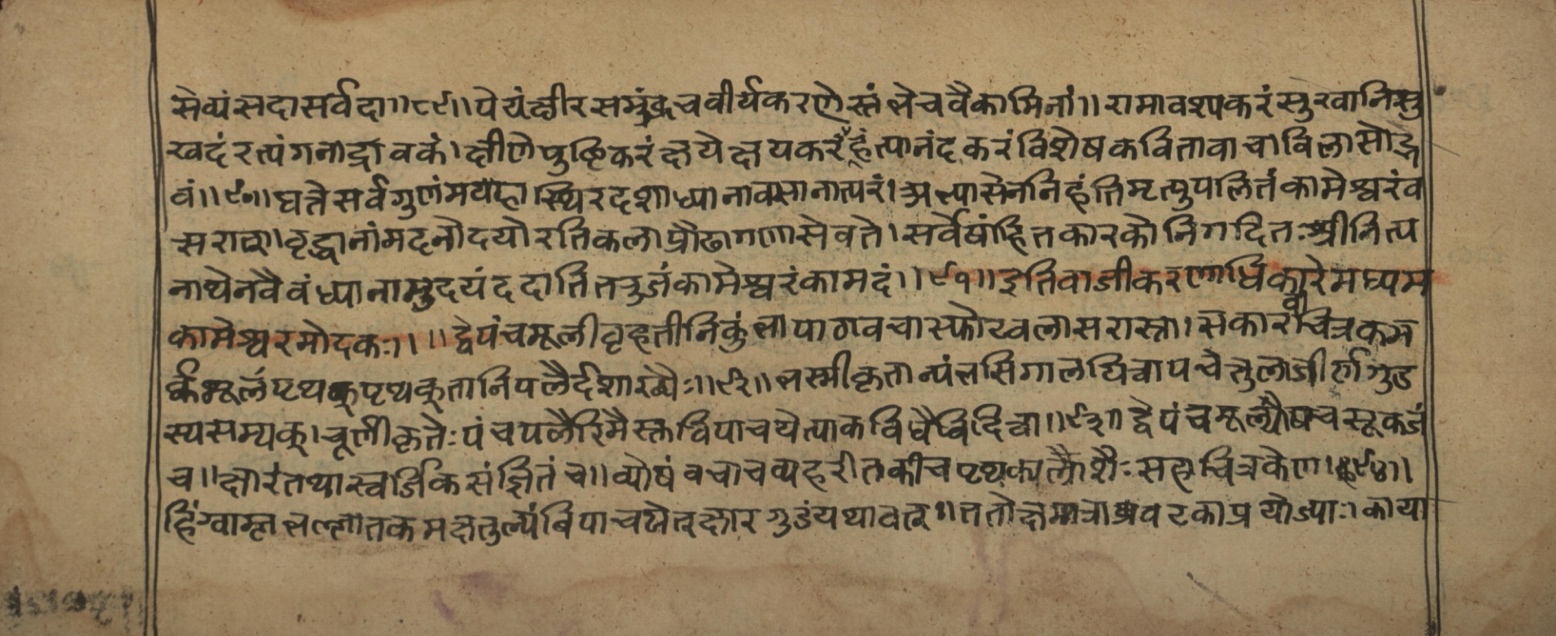 सेव्यं सदा सर्वदा ॥८९॥ पेयं क्षीरसमुद्रं च वीर्यकरणे स्तंभे च वै कामिनां ॥ रामावश्यकरं सु रवानिसु
खदं रत्यंगनाद्रावकं । क्षीणे पुष्टिकरं क्षये क्षयकरं हंत्यानंदकरं विशेषकवितावाचाविलासोद्भ
वं ॥९०॥ धत्ते सर्वगुणं स्थिरदशाध्यानावसानात्परं । अभ्यासेन निहंति मृत्युपलितं कामेश्वरं व
सरात् । वृद्धानां मदनोदयो रतिकला प्रौढागणासेवते । सर्वेषां हितकारको निगदितः श्रीनित्य
नाथेन वै वंध्यानामुदयं ददाति तनुजं कामेश्वरं कामदं ॥९१॥ इति वाजीकरणाधिकारे मध्यम
कामेश्वरमोदकः ॥ ॥ द्वे पंचमूली वृहती निकुंभा पाठा वचा स्फोरवला सरास्ना । सकारवी चित्रकम
र्कमूलं पृथक् पृथक् तानि पलैर्दशाख्यैः ॥९२॥ भस्मीकृतान्यंभसि गालयित्वा पचेत्तुलां जीर्णगुड
स्य सम्यक् । चूर्णीकृतैः पंचपलैरिमैस्तु विपाचयेत्पाकविधिं विदित्वा ॥९३॥ द्वे पंचमूल्यौ
च ॥ क्षारं तथा स्वर्जिकसंज्ञितं च ॥ व्योषं वचा चव्यहरीतकी च पृथक्पलांशैः सह चित्रकेण ॥९४॥
हिंग्वाम्लभल्लातकमक्षतुल्यं विपाचयेत्क्षारगुडं यथावत् ॥ ततोक्षमात्रा वटकाः प्रयोज्याः । काया